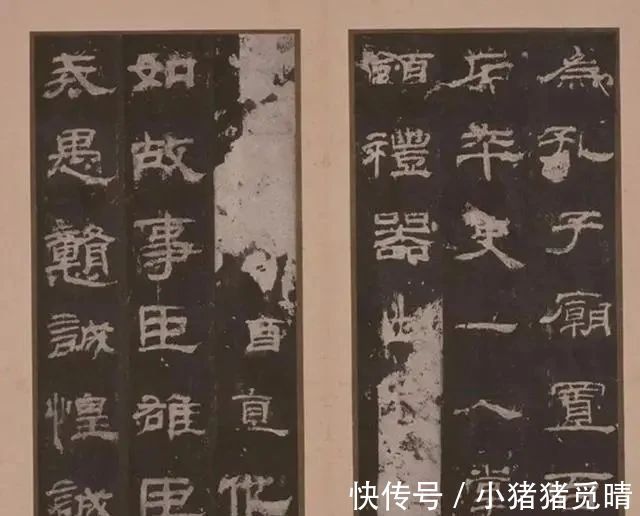 為孔子廟置百
石卒史一人掌
領禮器出
直他
如故事臣雄臣
戒愚戇誠惶誠
快传号／小猪猪觅晴